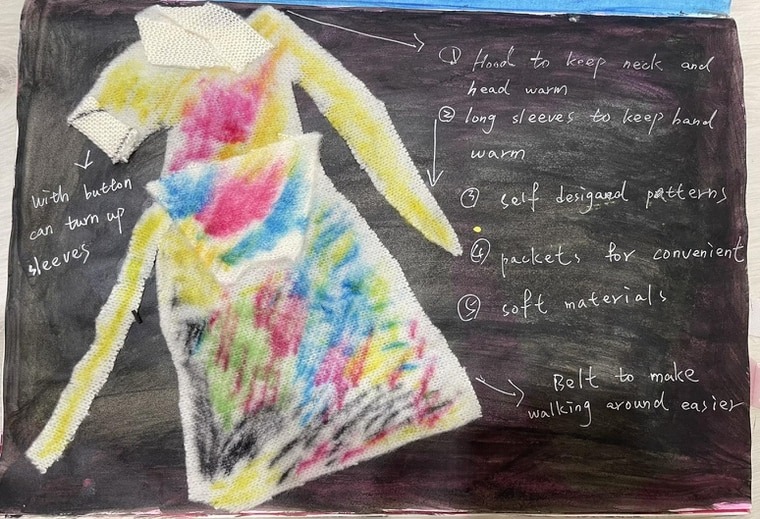 ① Hood to keep neck and
head warm
② long sleeves to keep hand
warm
③ self desigand patterns
④ packets for convenient
⑤ soft materials
Belt to make
walking around easier
with button
can turn up
sleeves